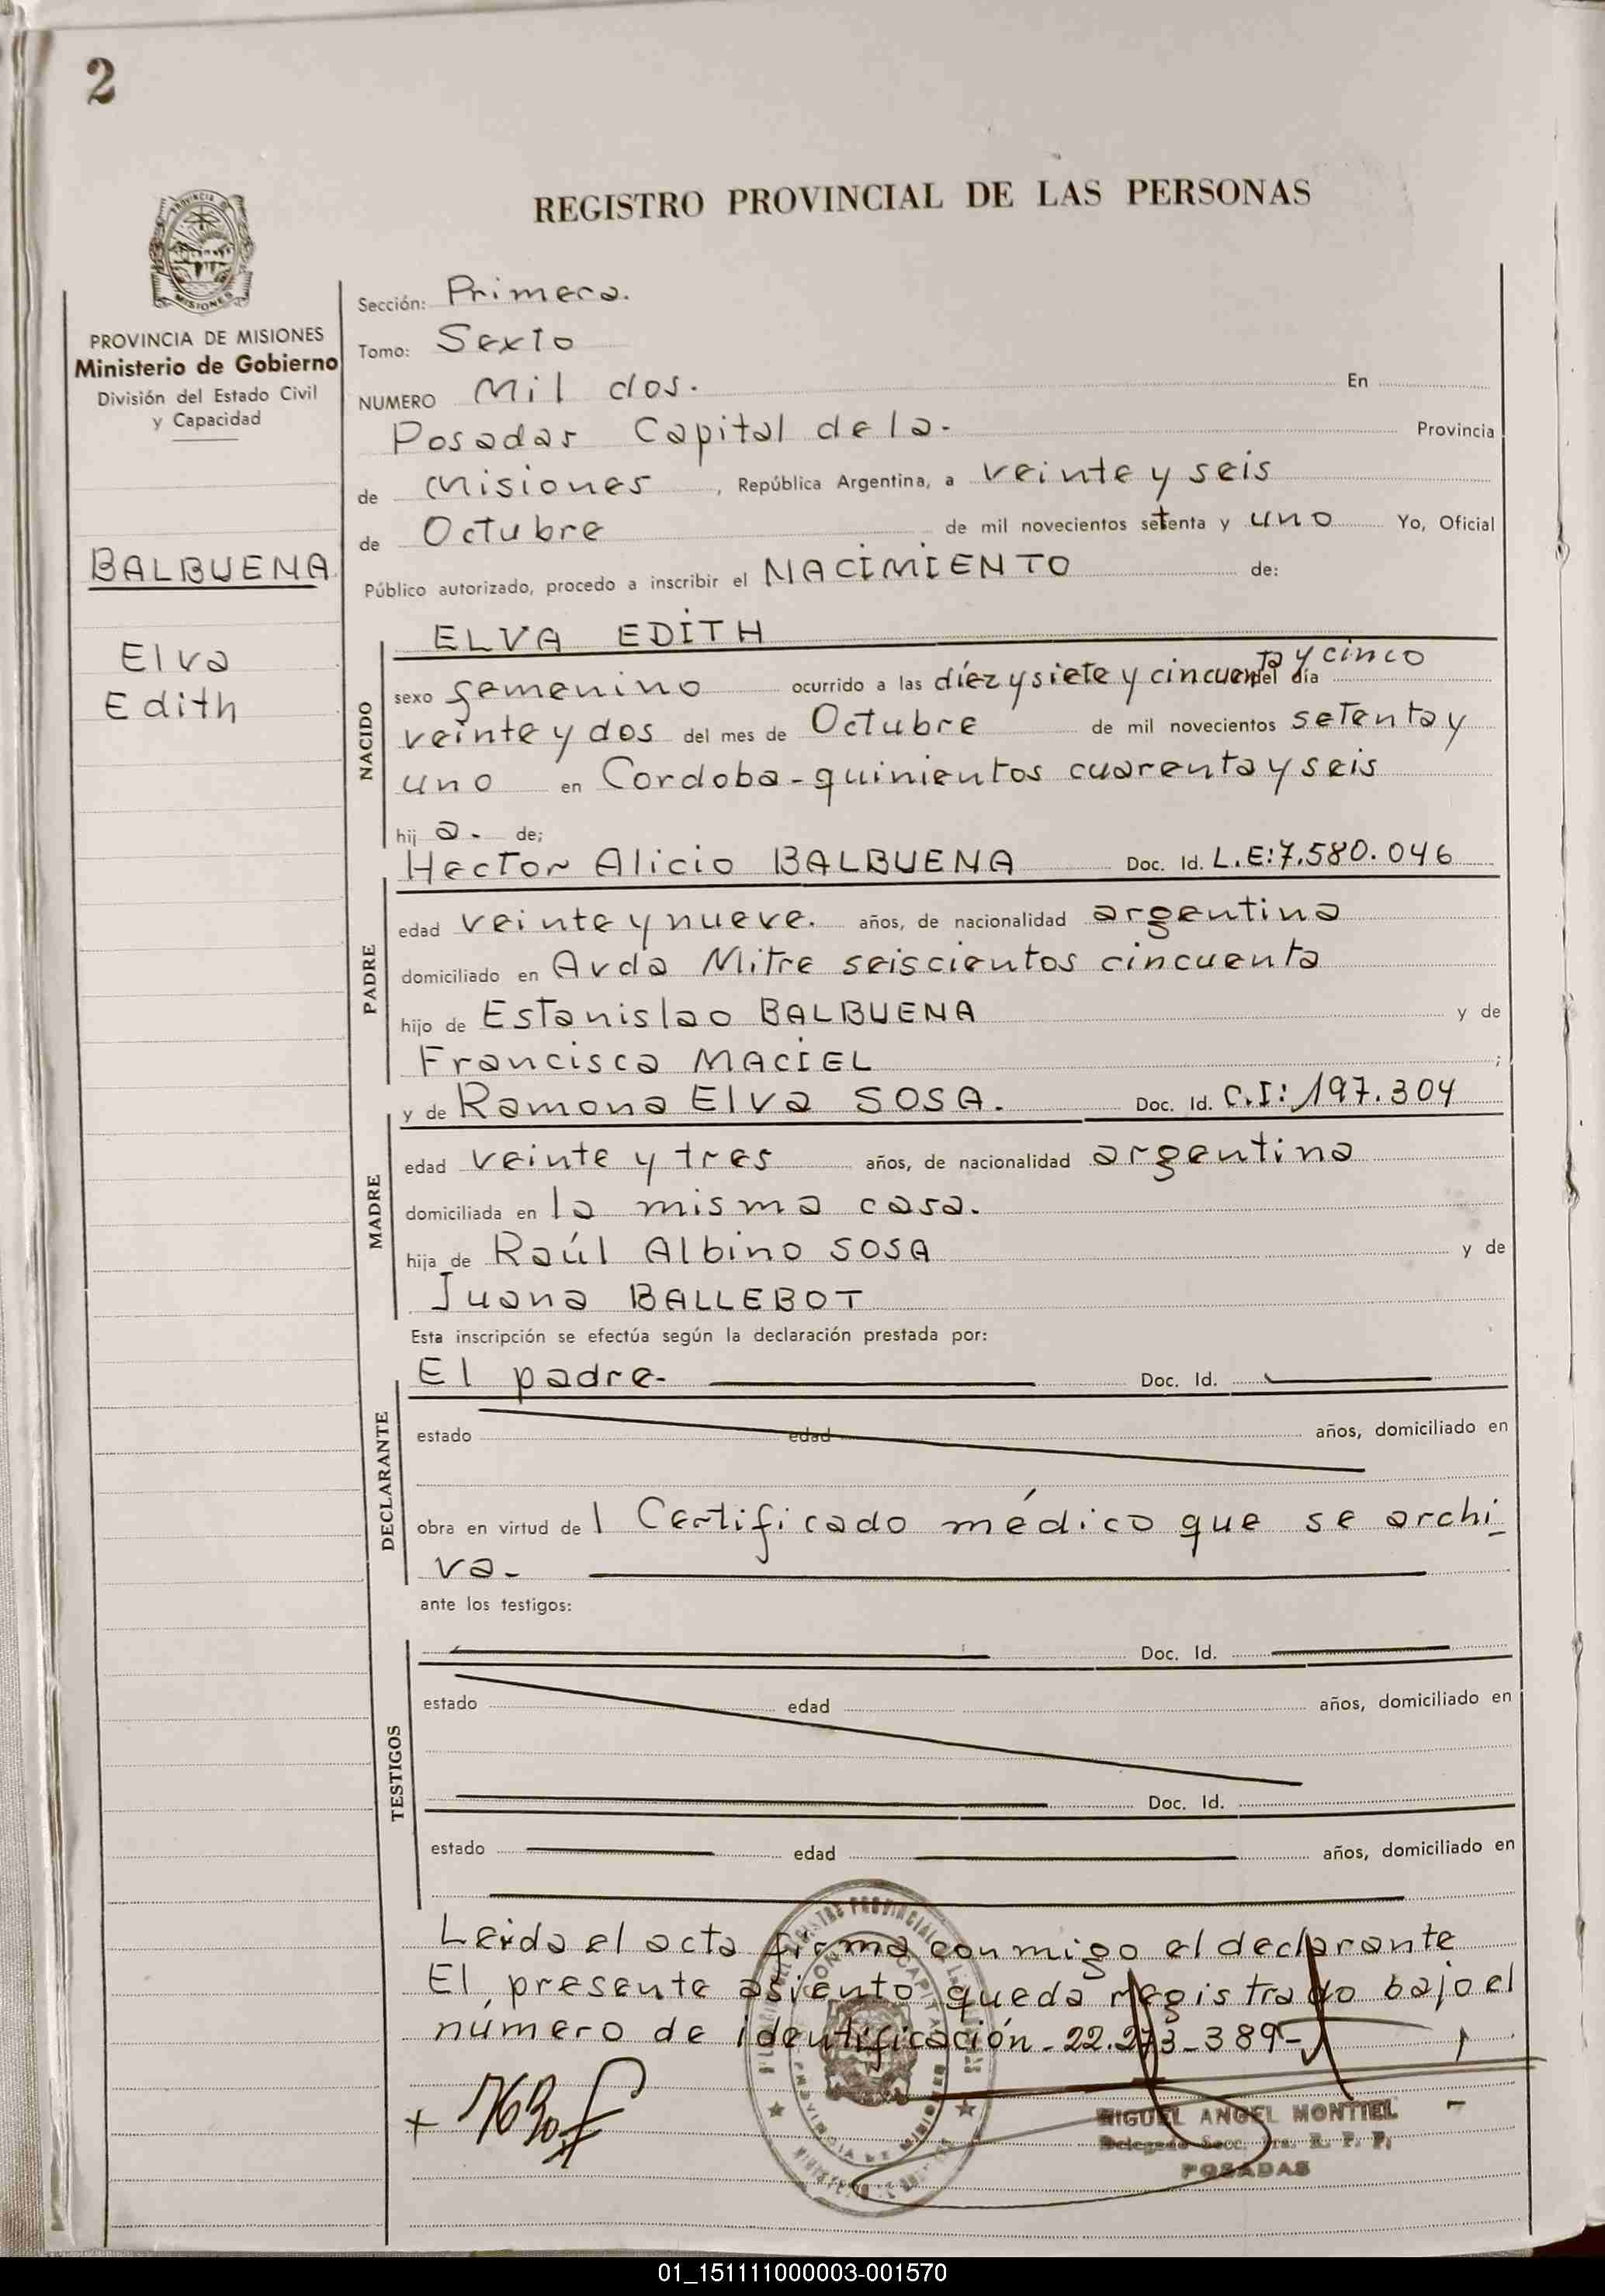 2
REGISTRO PROVINCIAL DE LAS PERSONAS
PROVINCIA DE MISIONES
Ministerio de Gobierno
División del Estado Civil
y Capacidad
BALBUENA
Elva
Edith
Sección: Primera.
Tomo: Sexto
NUMERO Mil dos. En
Posadas Capital de la- Provincia
de Misiones , República Argentina, a veinte y seis
de Octubre de mil novecientos setenta y uno Yo, Oficial
Público autorizado, procedo a inscribir el NACIMIENTO de:
NACIDO
ELVA EDITH
sexo femenino ocurrido a las diez y siete y cincuenta y cinco del día
veinte y dos del mes de Octubre de mil novecientos setenta y
uno en Cordoba-quinientos cuarenta y seis
hij a. de;
PADRE
Hector Alicio BALBUENA Doc. Id. L.E:7.580.046
edad veinte y nueve. años, de nacionalidad argentina
domiciliado en Avda Mitre seiscientos cincuenta
hijo de Estanislao BALBUENA y de
Francisca MACIEL ;
MADRE
y de Ramona Elva SOSA. Doc. Id. C.I: 197.304
edad veinte y tres años, de nacionalidad argentina
domiciliada en la misma casa.
hija de Raúl Albino SOSA y de
Juana BALLEBOT
Esta inscripción se efectúa según la declaración prestada por:
DECLARANTE
El padre- Doc. Id.
estado edad años, domiciliado en
obra en virtud de l Certificado médico que se archi
va.-
ante los testigos:
TESTIGOS
Doc. Id.
estado edad años, domiciliado en
Doc. Id.
estado edad años, domiciliado en
Leida el acta firma conmigo el declarante
El presente asiento queda registrado bajo el
número de identificación-22.273-389-
MIGUEL ANGEL MONTIEL
Delegado Secc. 1ra. R. P. P.
POSADAS
01_151111000003-001570